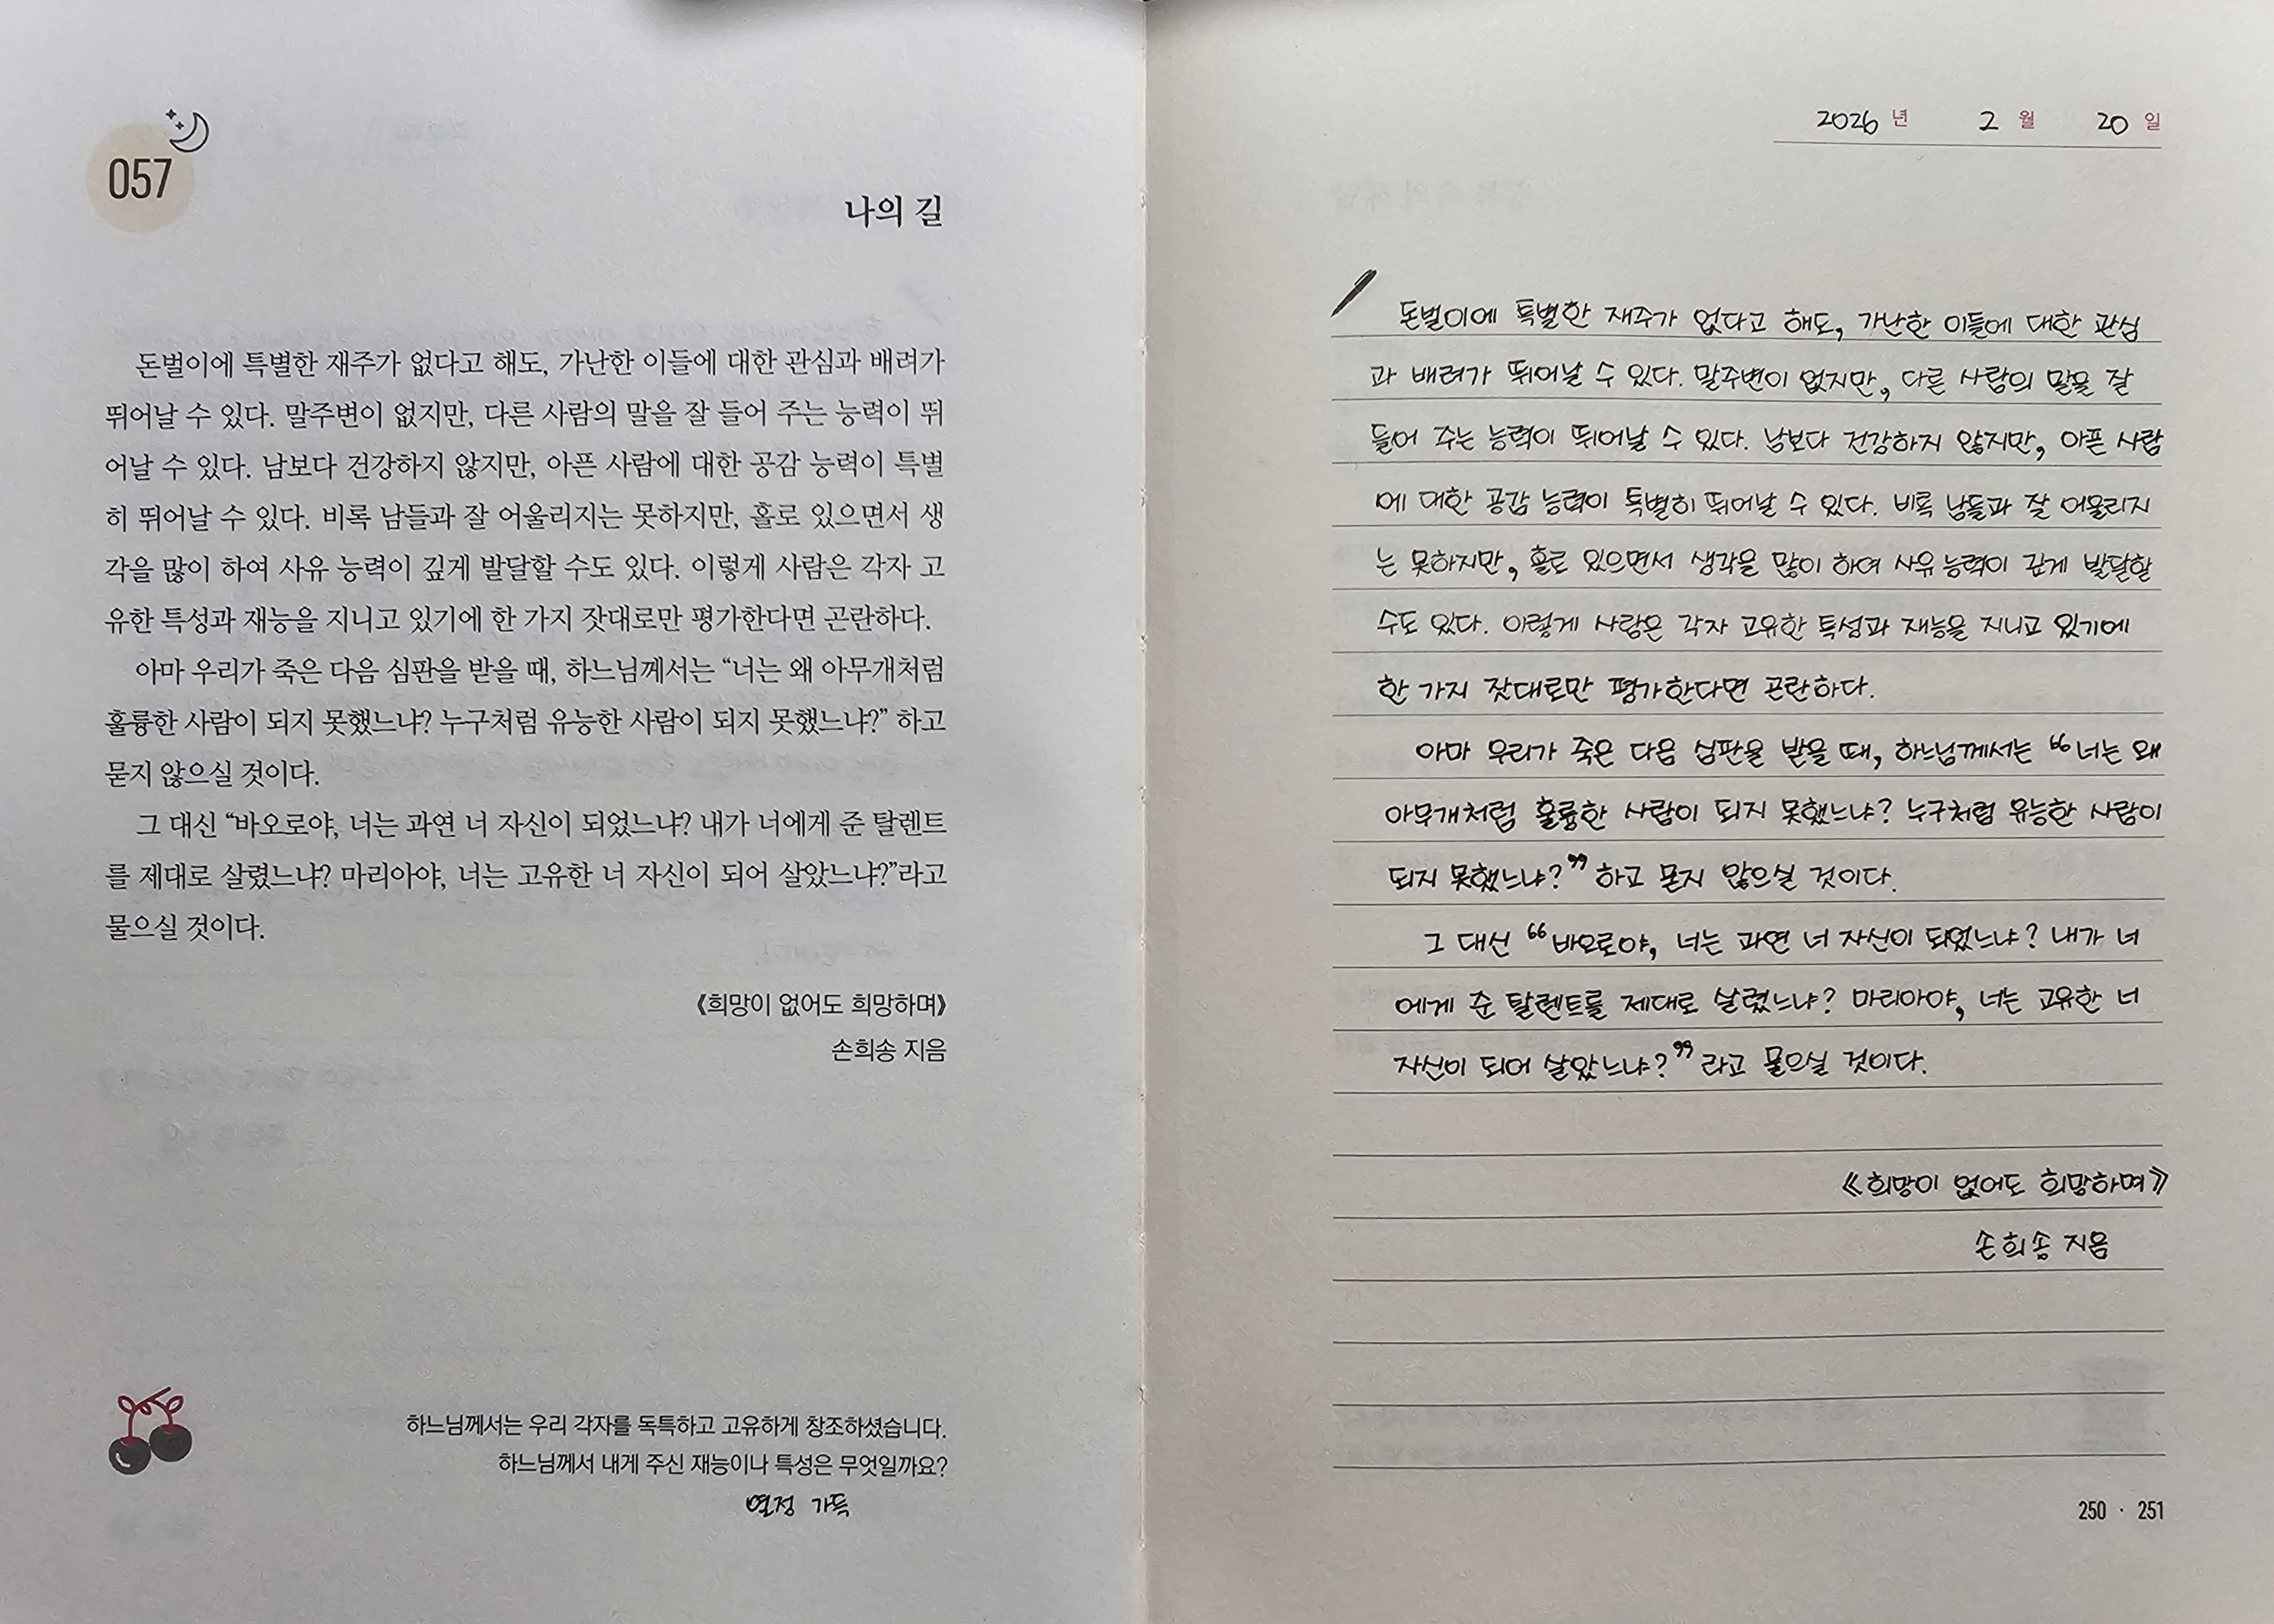 057
나의 길
돈벌이에 특별한 재주가 없다고 해도, 가난한 이들에 대한 관심과 배려가
뛰어날 수 있다. 말주변이 없지만, 다른 사람의 말을 잘 들어 주는 능력이 뛰
어날 수 있다. 남보다 건강하지 않지만, 아픈 사람에 대한 공감 능력이 특별
히 뛰어날 수 있다. 비록 남들과 잘 어울리지는 못하지만, 홀로 있으면서 생
각을 많이 하여 사유 능력이 깊게 발달할 수도 있다. 이렇게 사람은 각자 고
유한 특성과 재능을 지니고 있기에 한 가지 잣대로만 평가한다면 곤란하다.
아마 우리가 죽은 다음 심판을 받을 때, 하느님께서는 “너는 왜 아무개처럼
훌륭한 사람이 되지 못했느냐? 누구처럼 유능한 사람이 되지 못했느냐?” 하고
묻지 않으실 것이다.
그 대신 “바오로야, 너는 과연 너 자신이 되었느냐? 내가 너에게 준 탈렌트
를 제대로 살렸느냐? 마리아야, 너는 고유한 너 자신이 되어 살았느냐?”라고
물으실 것이다.
《희망이 없어도 희망하며》
손희송 지음
하느님께서는 우리 각자를 독특하고 고유하게 창조하셨습니다.
하느님께서 내게 주신 재능이나 특성은 무엇일까요?
열정 가득
2026 년 2 월 20 일
돈벌이에 특별한 재주가 없다고 해도, 가난한 이들에 대한 관심
과 배려가 뛰어날 수 있다. 말주변이 없지만, 다른 사람의 말을 잘
들어 주는 능력이 뛰어날 수 있다. 남보다 건강하지 않지만, 아픈 사람
에 대한 공감 능력이 특별히 뛰어날 수 있다. 비록 남들과 잘 어울리지
는 못하지만, 홀로 있으면서 생각을 많이 하여 사유 능력이 깊게 발달할
수도 있다. 이렇게 사람은 각자 고유한 특성과 재능을 지니고 있기에
한 가지 잣대로만 평가한다면 곤란하다.
아마 우리가 죽은 다음 심판을 받을 때, 하느님께서는 “너는 왜
아무개처럼 훌륭한 사람이 되지 못했느냐? 누구처럼 유능한 사람이
되지 못했느냐?” 하고 묻지 않으실 것이다.
그 대신 “바오로야, 너는 과연 너 자신이 되었느냐? 내가 너
에게 준 탈렌트를 제대로 살렸느냐? 마리아야, 너는 고유한 너
자신이 되어 살았느냐?” 라고 물으실 것이다.
《희망이 없어도 희망하며》
손희송 지음
250 · 251